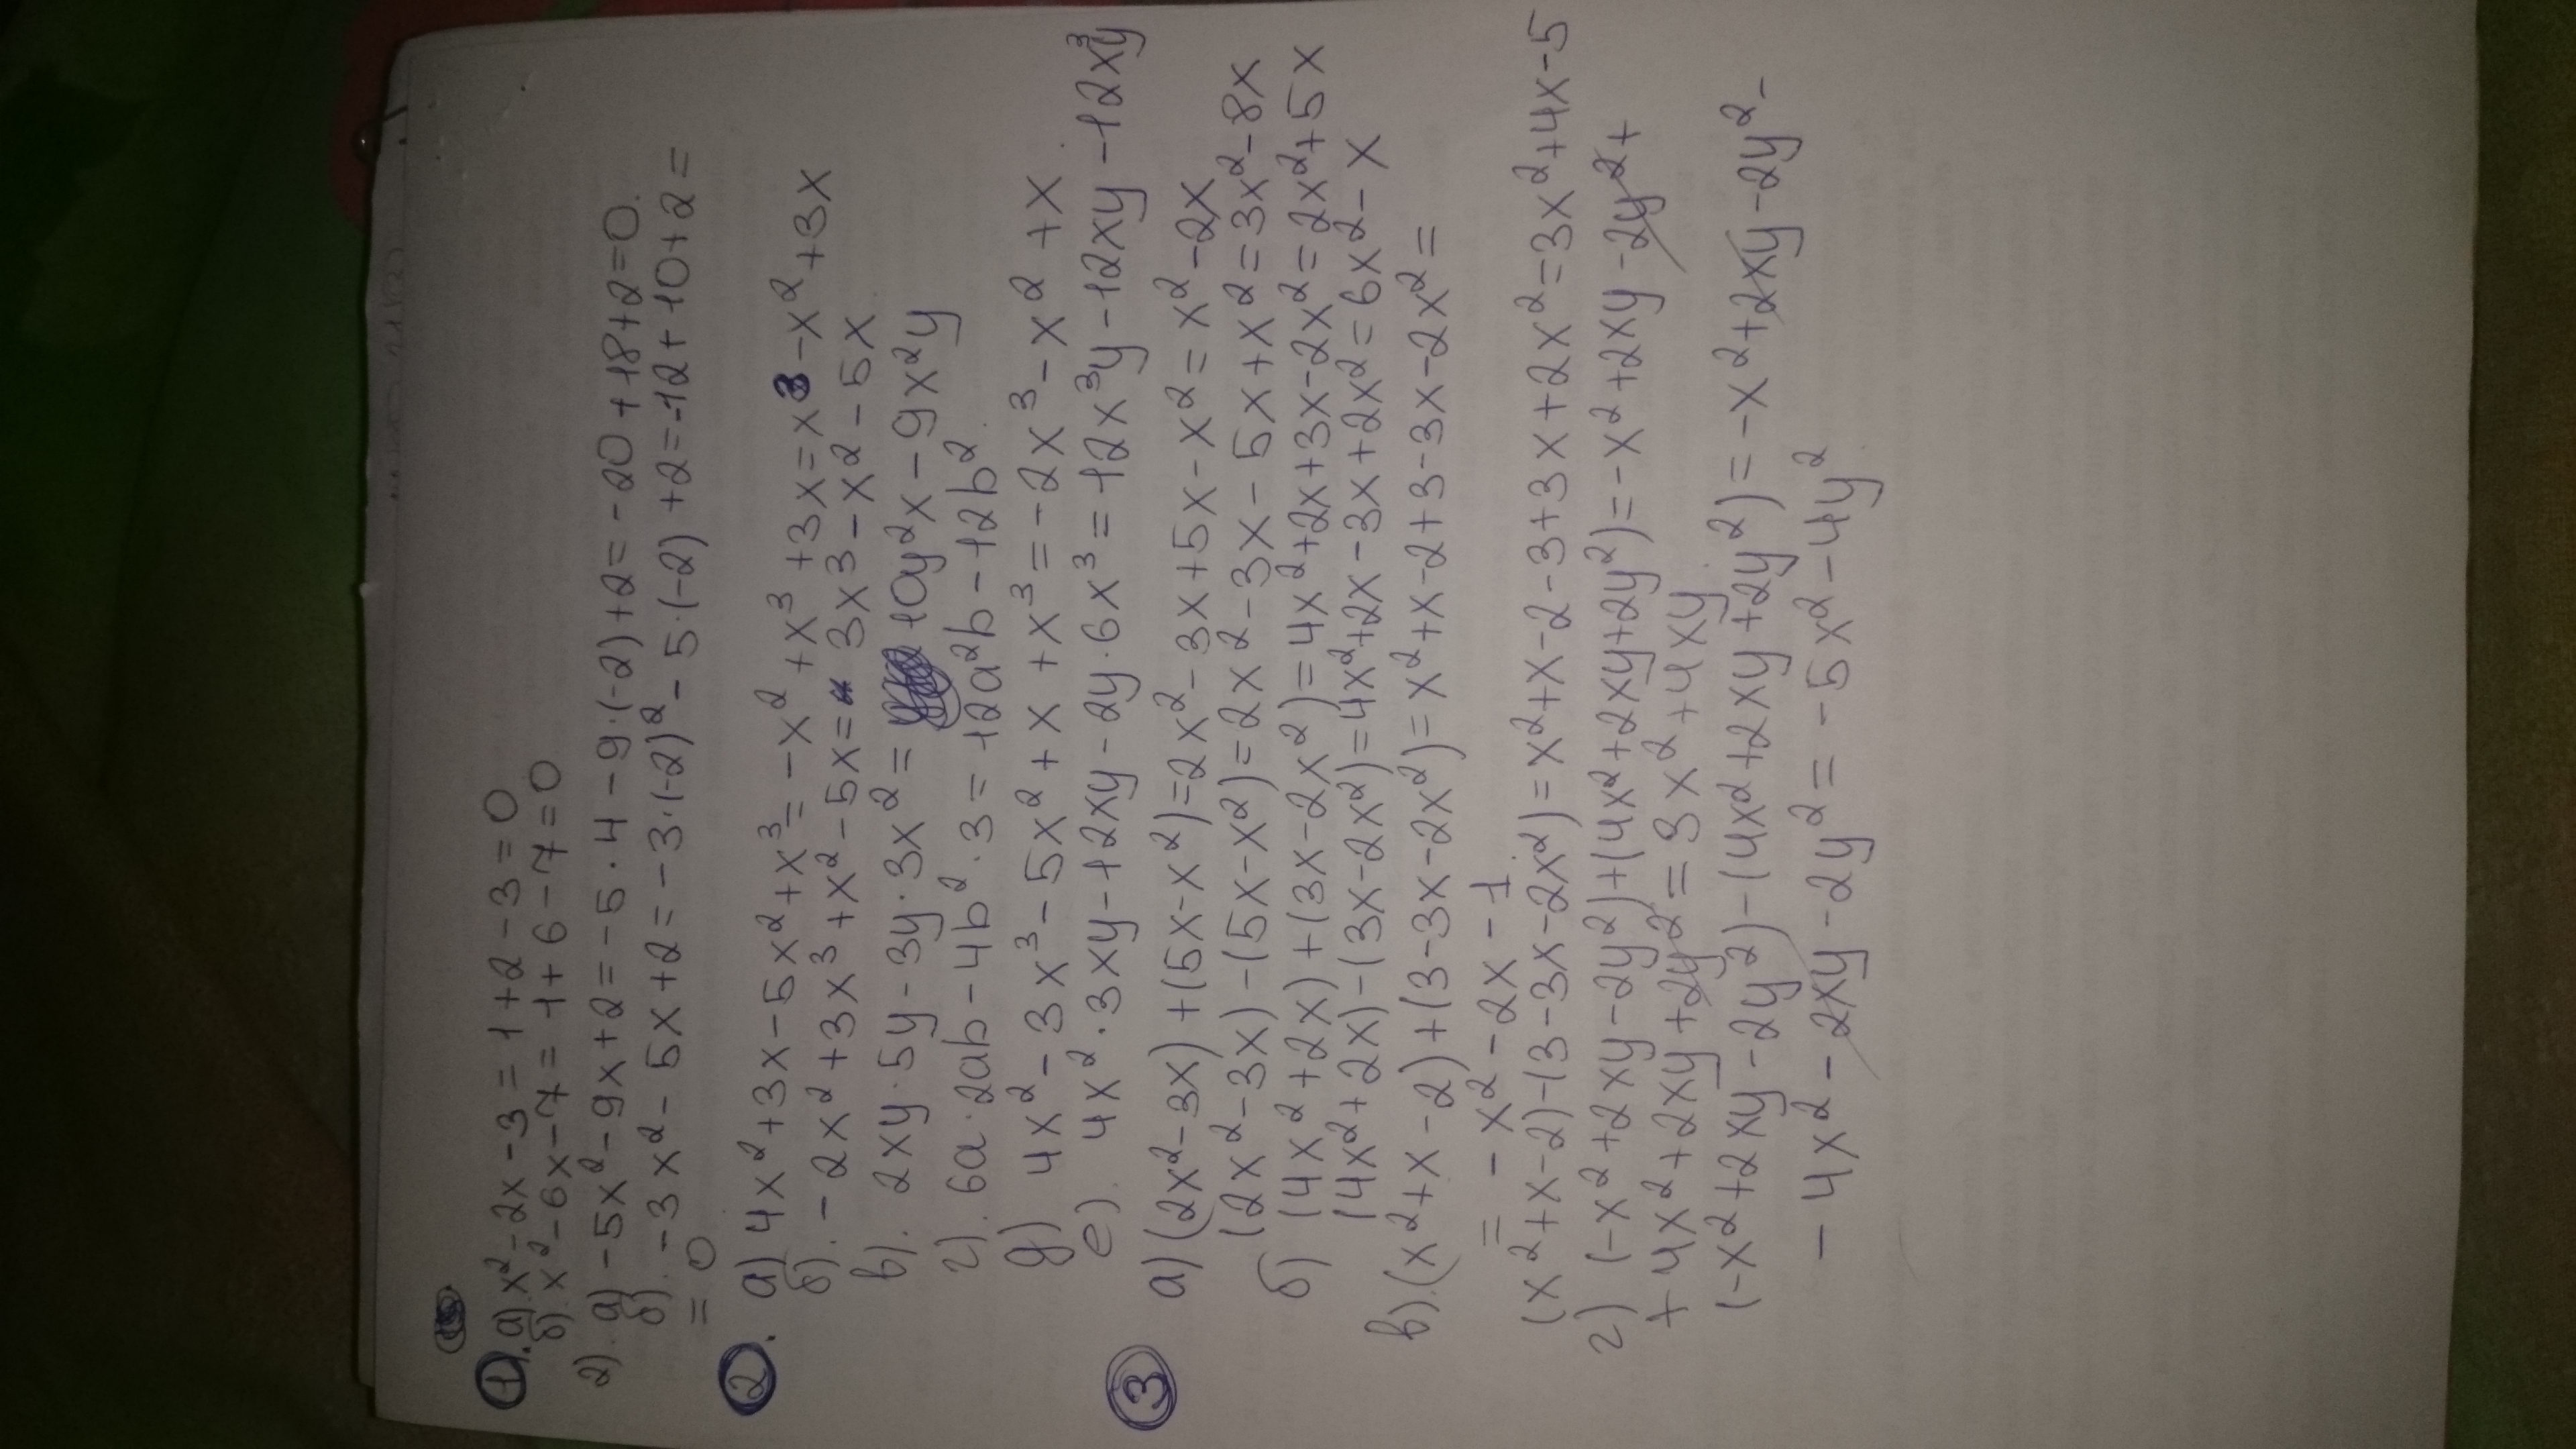 1. а). x² - 2x - 3 = 1 + 2 - 3 = 0
б). x² - 6x - 7 = 1 + 6 - 7 = 0
2). а) -5x² - 9x + 2 = -5 · 4 - 9 · (-2) + 2 = -20 + 18 + 2 = 0.
б). -3x² - 5x + 2 = -3 · (-2)² - 5 · (-2) + 2 = -12 + 10 + 2 =
= 0
2. а) 4x² + 3x - 5x² + x³ = -x² + x³ + 3x = x³ - x² + 3x
б). -2x² + 3x³ + x² - 5x = 3x³ - x² - 5x
в). 2xy · 5y - 3y · 3x² = 10y²x - 9x²y
г). 6a · 2ab - 4b² · 3 = 12a²b - 12b².
д) 4x² - 3x³ - 5x² + x + x³ = -2x³ - x² + x
е). 4x² · 3xy - 12xy - 2y · 6x³ = 12x³y - 12xy - 12x³y
3 а) (2x² - 3x) + (5x - x²) = 2x² - 3x + 5x - x² = x² - 2x
(2x² - 3x) - (5x - x²) = 2x² - 3x - 5x + x² = 3x² - 8x
б) (4x² + 2x) + (3x - 2x²) = 4x² + 2x + 3x - 2x² = 2x² + 5x
(4x² + 2x) - (3x - 2x²) = 4x² + 2x - 3x + 2x² = 6x² - x
в). (x² + x - 2) + (3 - 3x - 2x²) = x² + x - 2 + 3 - 3x - 2x² =
= -x² - 2x - 1.
(x² + x - 2) - (3 - 3x - 2x²) = x² + x - 2 - 3 + 3x + 2x² = 3x² + 4x - 5
г) (-x² + 2xy - 2y²) + (4x² + 2xy + 2y²) = -x² + 2xy - 2y² +
+ 4x² + 2xy + 2y² = 3x² + 4xy.
(-x² + 2xy - 2y²) - (4x² + 2xy + 2y²) = -x² + 2xy - 2y² -
- 4x² - 2xy - 2y² = -5x² - 4y².